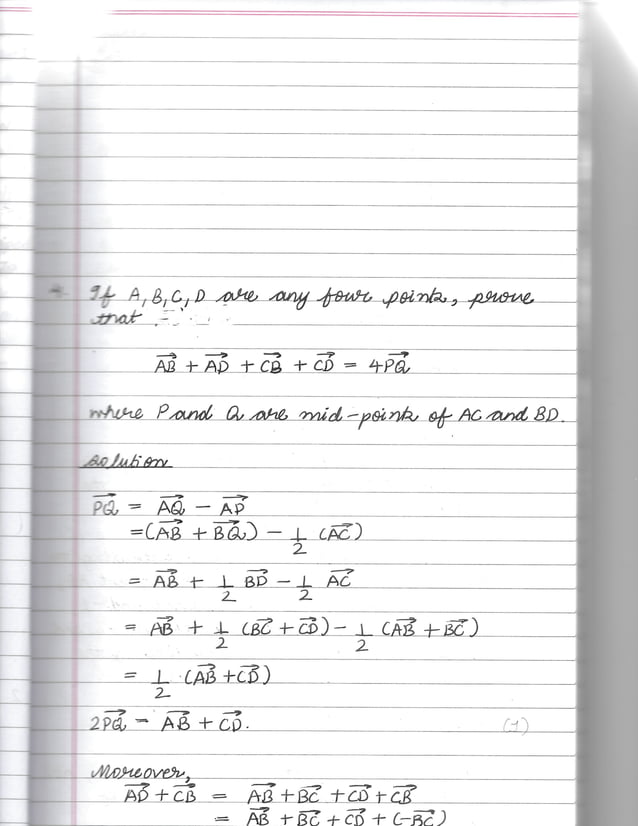 If A, B, C, D are any four points, prove
that
$\overrightarrow{AB} + \overrightarrow{AD} + \overrightarrow{CB} + \overrightarrow{CD} = 4\overrightarrow{PQ}$
where P and Q are mid-points of AC and BD.
Solution
$\overrightarrow{PQ} = \overrightarrow{AQ} - \overrightarrow{AP}$
$= (\overrightarrow{AB} + \overrightarrow{BQ}) - \frac{1}{2} (\overrightarrow{AC})$
$= \overrightarrow{AB} + \frac{1}{2} \overrightarrow{BD} - \frac{1}{2} \overrightarrow{AC}$
$= \overrightarrow{AB} + \frac{1}{2} (\overrightarrow{BC} + \overrightarrow{CD}) - \frac{1}{2} (\overrightarrow{AB} + \overrightarrow{BC})$
$= \frac{1}{2} (\overrightarrow{AB} + \overrightarrow{CD})$
$2\overrightarrow{PQ} = \overrightarrow{AB} + \overrightarrow{CD}.$ (1)
Moreover,
$\overrightarrow{AD} + \overrightarrow{CB} = \overrightarrow{AB} + \overrightarrow{BC} + \overrightarrow{CD} + \overrightarrow{CB}$
$= \overrightarrow{AB} + \overrightarrow{BC} + \overrightarrow{CD} + (-\overrightarrow{BC})$